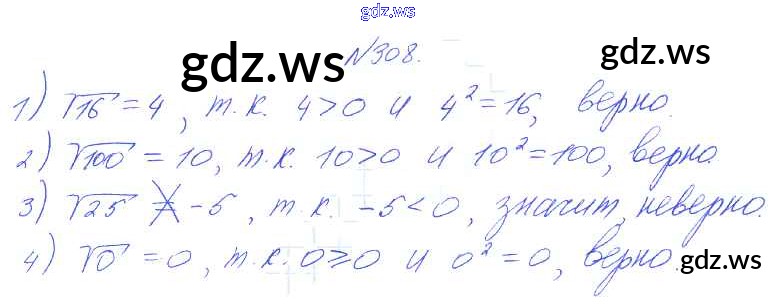 gdz.ws
№308.
gdz.ws
gdz.ws
1) √16 = 4, т.к. 4>0 и 4²=16, верно.
2) √100 = 10, т.к. 10>0 и 10²=100, верно.
3) √25 ≠ -5, т.к. -5<0, значит, неверно.
4) √0 = 0, т.к. 0⩾0 и 0²=0, верно.
gdz.ws